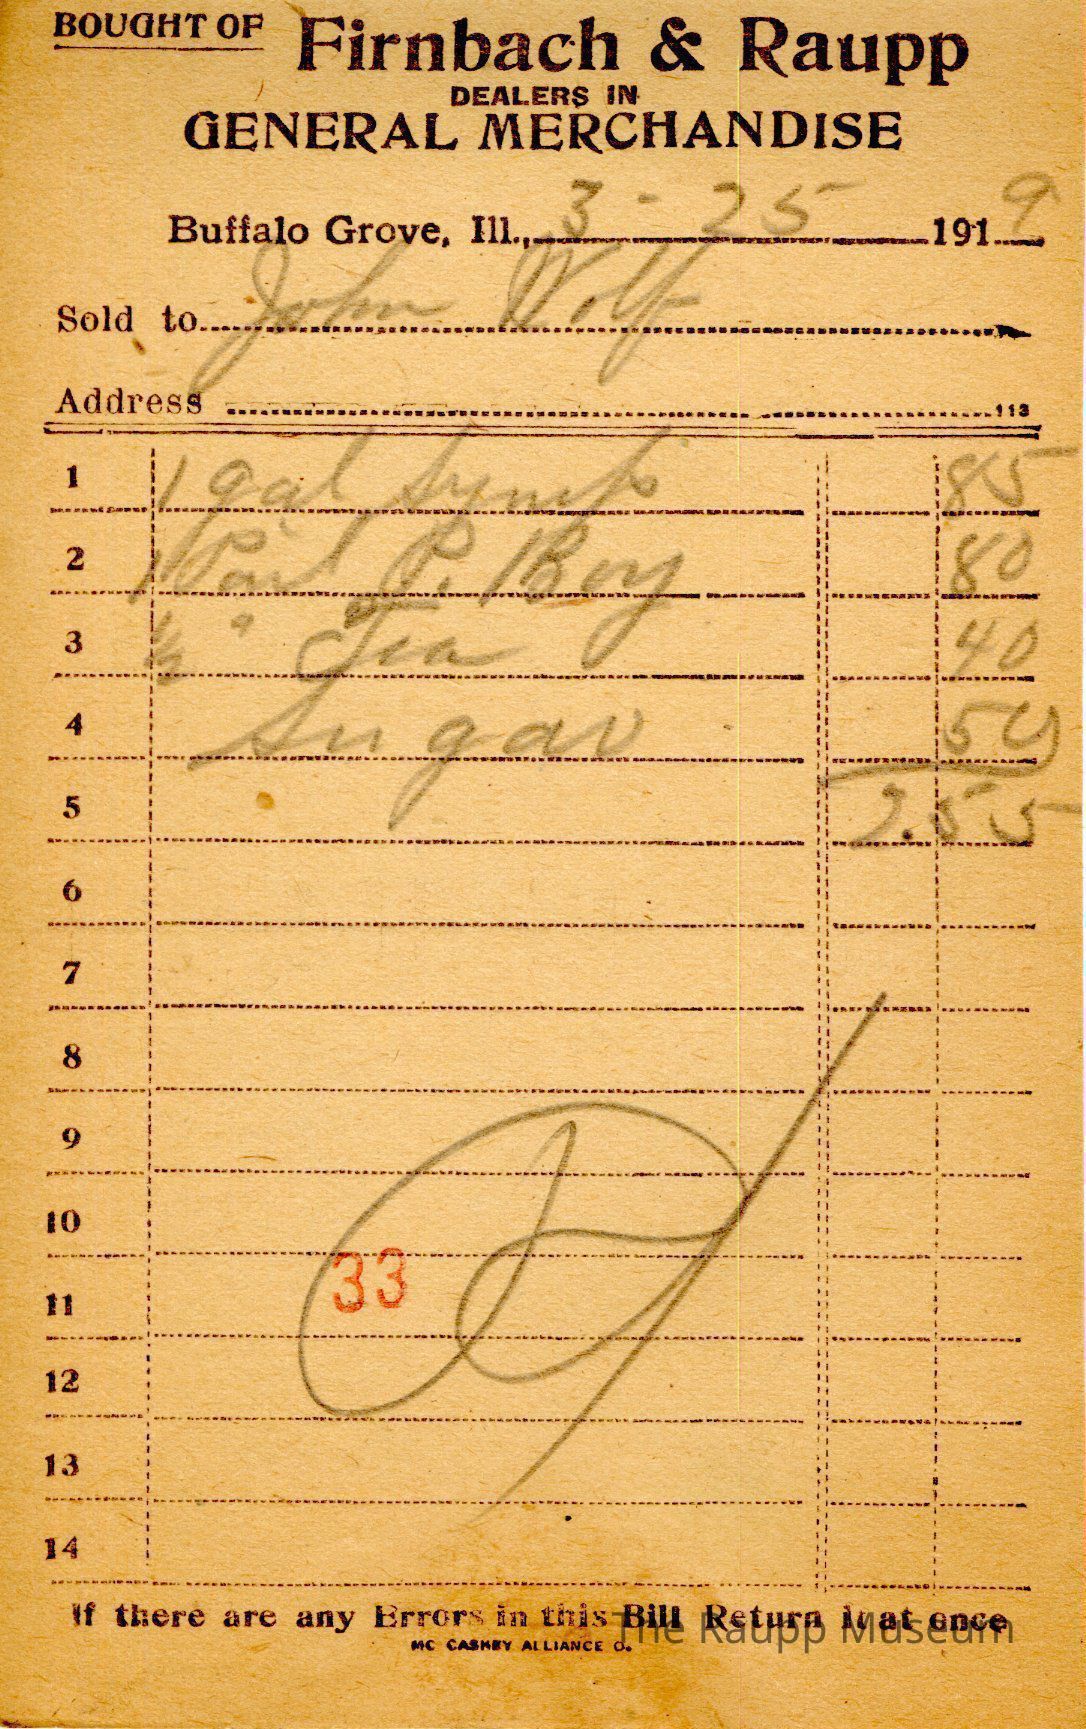 BOUGHT OF Firnbach & Raupp
DEALERS IN
GENERAL MERCHANDISE
Buffalo Grove, Ill., 3-25 1919
Sold to John Wolf
Address 113
1 1 gal Syrup 85
2 1 Pail P. Boy 80
3 1/2 " Tea 40
4 Sugar 50
5 2.55
6
7
8
9
10
33
11
12
13
14
If there are any Errors in this Bill Return it at once
MC CASKEY ALLIANCE O.
The Raupp Museum